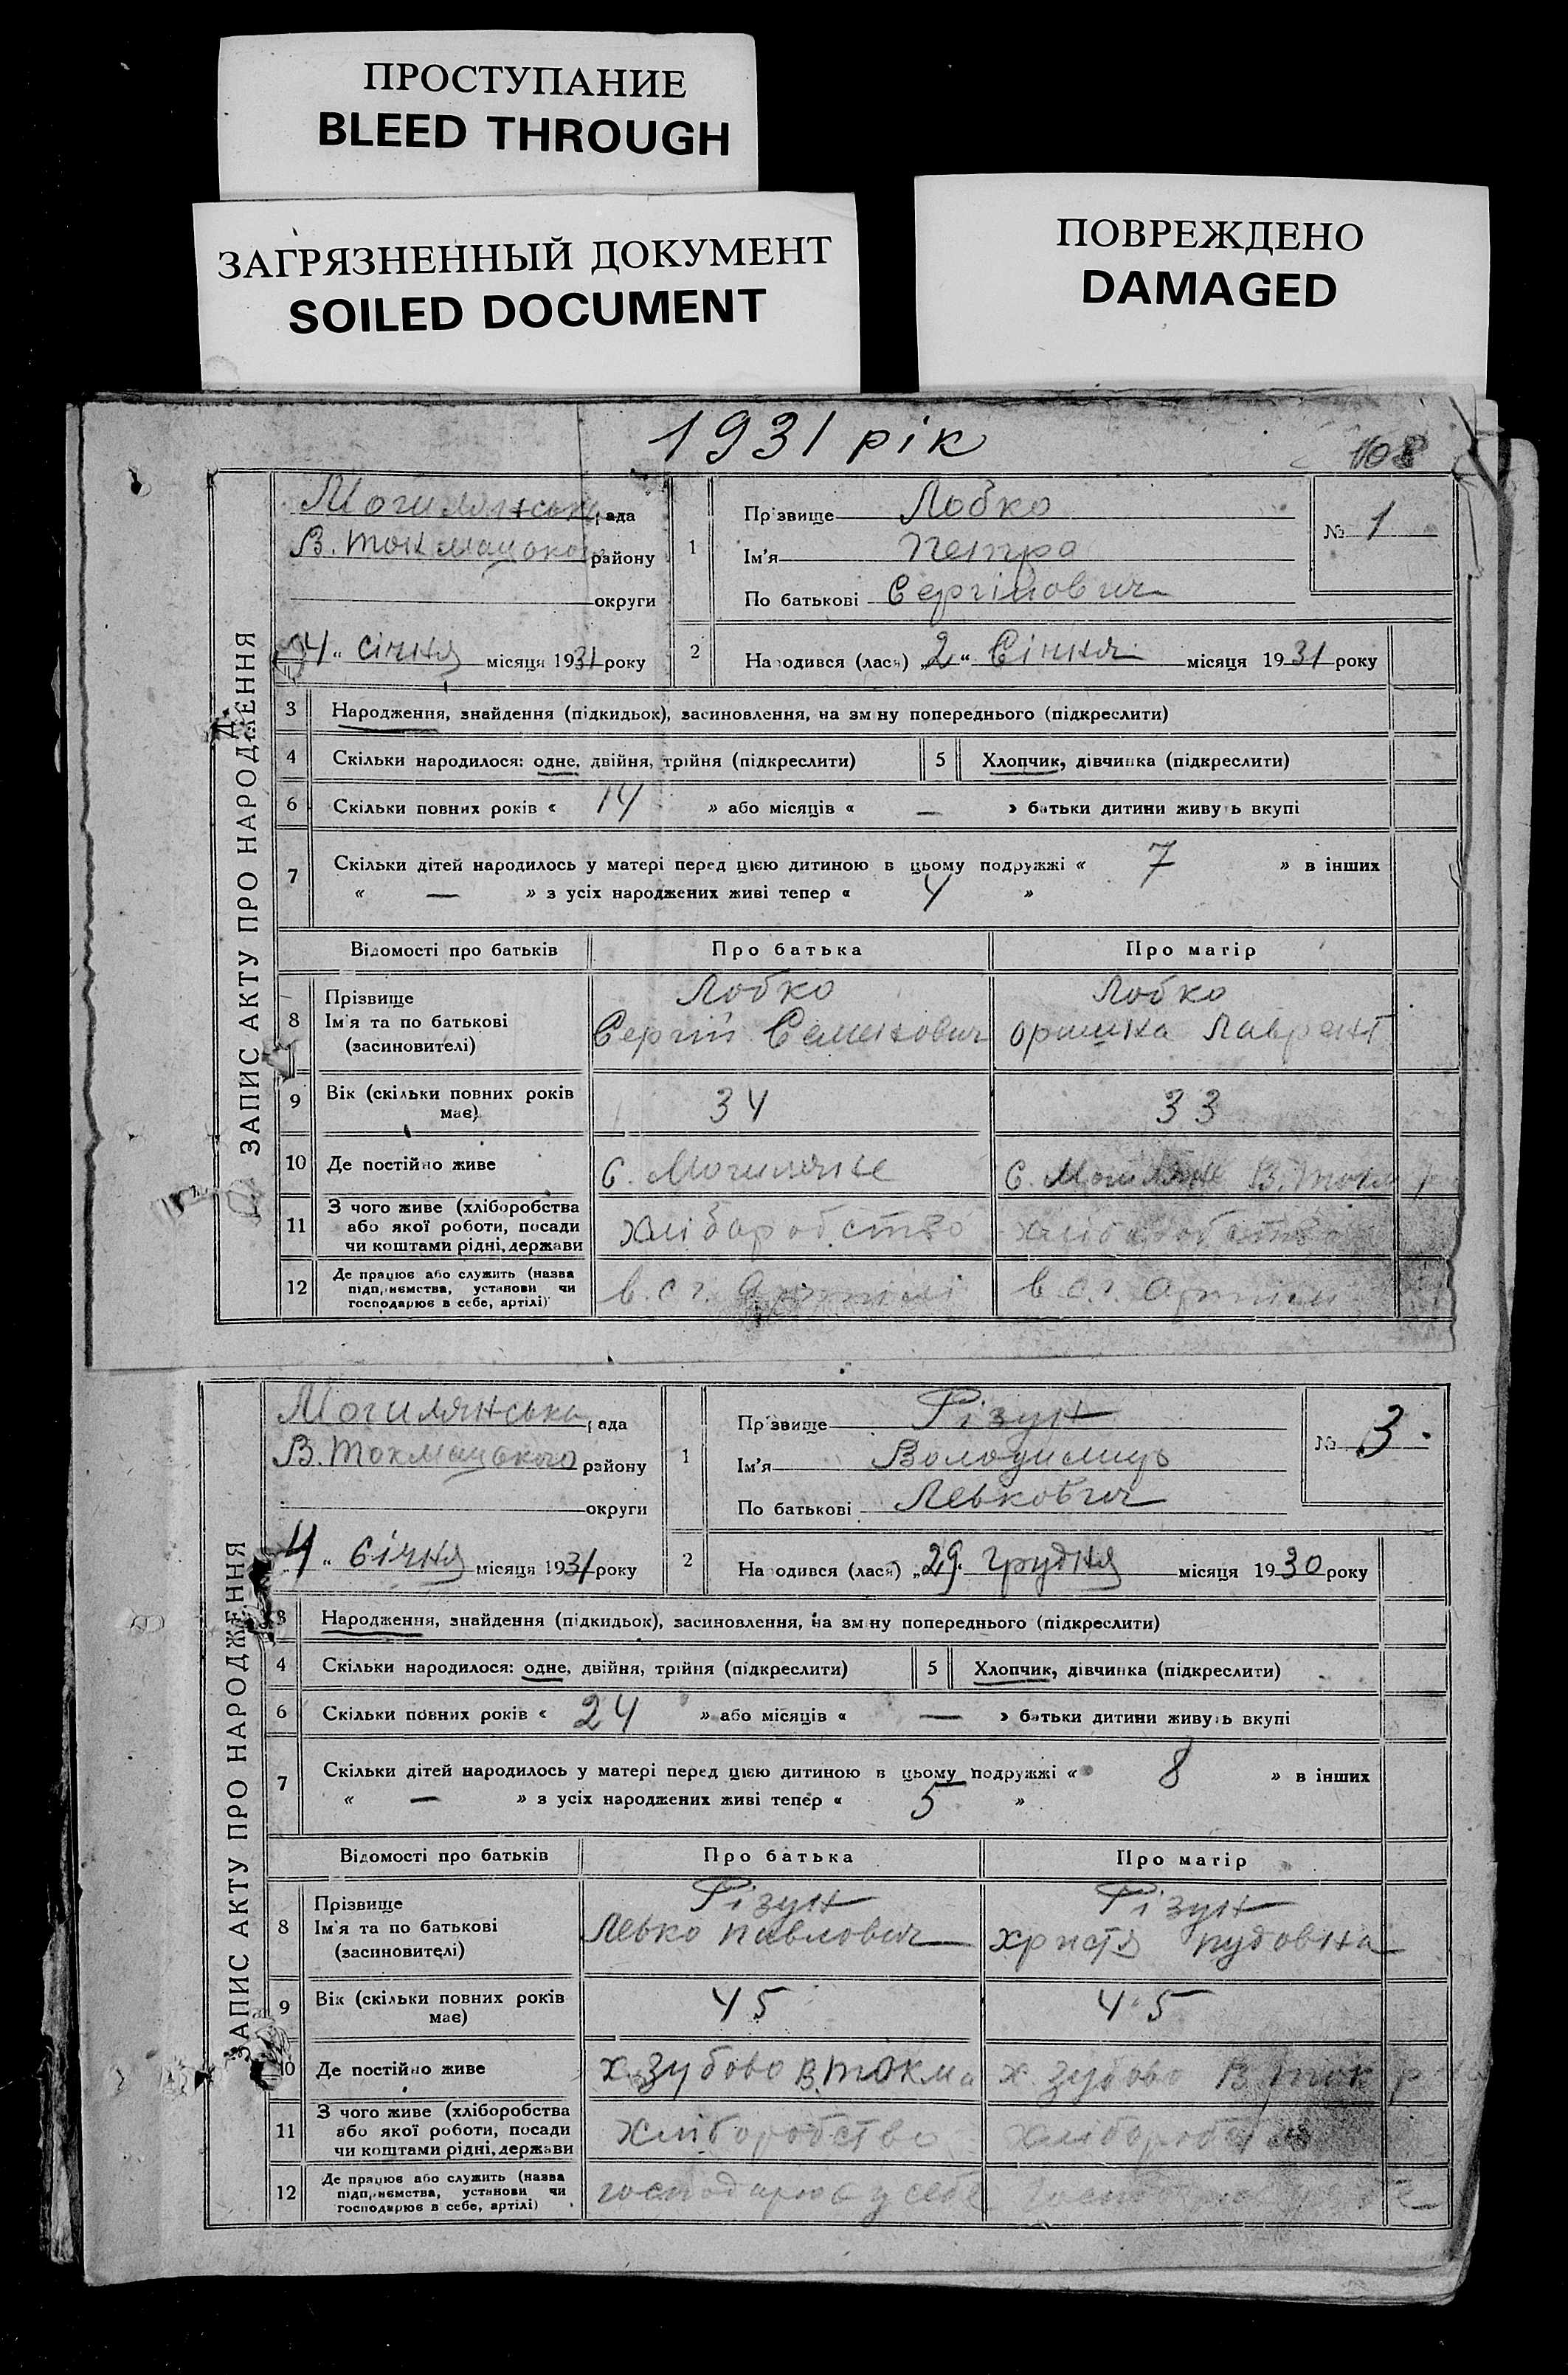 ПРОСТУПАНИЕ
BLEED THROUGH
ЗАГРЯЗНЕННЫЙ ДОКУМЕНТ
SOILED DOCUMENT
ПОВРЕЖДЕНО
DAMAGED
1931 рік
108
ЗАПИС АКТУ ПРО НАРОДЖЕННЯ
Могилянська рада
В. Токмацького району
округи
4 " січня місяця 1931 року
1
Прізвище Лобко
Ім'я Петро
По батькові Сергійович
№ 1
2
Народився (лася) „2" Січня місяця 1931 року
3 Народження, знайдення (підкидьок), засиновлення, на зміну попереднього (підкреслити)
4 Скільки народилося: одне, двійня, трійня (підкреслити) 5 Хлопчик, дівчинка (підкреслити)
6 Скільки повних років « 14 » або місяців « — » батьки дитини живуть вкупі
7 Скільки дітей народилось у матері перед цією дитиною в цьому подружжі « 7 » в інших
« — » з усіх народжених живі тепер « 4 »
Відомості про батьків Про батька Про матір
8 Прізвище Лобко Лобко
Ім'я та по батькові Сергій Семенович Оришка Лаврент
(засиновителі)
9 Вік (скільки повних років має) 34 33
10 Де постійно живе С. Могиляне С. Могиляне В. Токм
11 З чого живе (хліборобства або якої роботи, посади чи коштами рідні, держави хліборобство хліборобство
12 Де працює або служить (назва підприємства, установи чи господарює в себе, артілі) в с. г. Артілі в с. г. Артілі
ЗАПИС АКТУ ПРО НАРОДЖЕННЯ
Могилянська рада
В. Токмацького району
округи
4 " Січня місяця 1931 року
1
Прізвище Різун
Ім'я Володимир
По батькові Левкович
№ 3
2
Народився (лася) „29. грудня місяця 1930 року
3 Народження, знайдення (підкидьок), засиновлення, на зміну попереднього (підкреслити)
4 Скільки народилося: одне, двійня, трійня (підкреслити) 5 Хлопчик, дівчинка (підкреслити)
6 Скільки повних років « 24 » або місяців « — » батьки дитини живуть вкупі
7 Скільки дітей народилось у матері перед цією дитиною в цьому подружжі « 8 » в інших
« — » з усіх народжених живі тепер « 5 »
Відомості про батьків Про батька Про матір
8 Прізвище Різун Різун
Ім'я та по батькові Левко Павлович Христя
(засиновителі)
9 Вік (скільки повних років має) 45 45
10 Де постійно живе х. Зубово В. Токма х. Зубово В. Ток
11 З чого живе (хліборобства або якої роботи, посади чи коштами рідні, держави хліборобство
12 Де працює або служить (назва підприємства, установи чи господарює в себе, артілі) господарює у себе